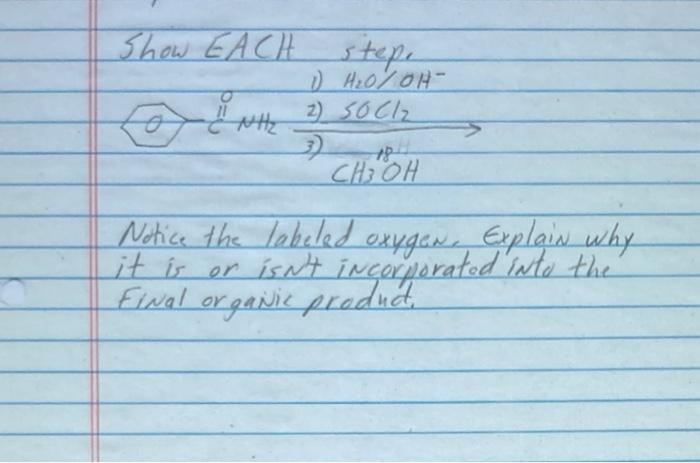 Show EACH step.
1) H2O/OH-
O
C NH2 2) SOCl2
3)
CH3 18OH
Notice the labeled oxygen. Explain why
it is or isn't incorporated into the
Final organic product.